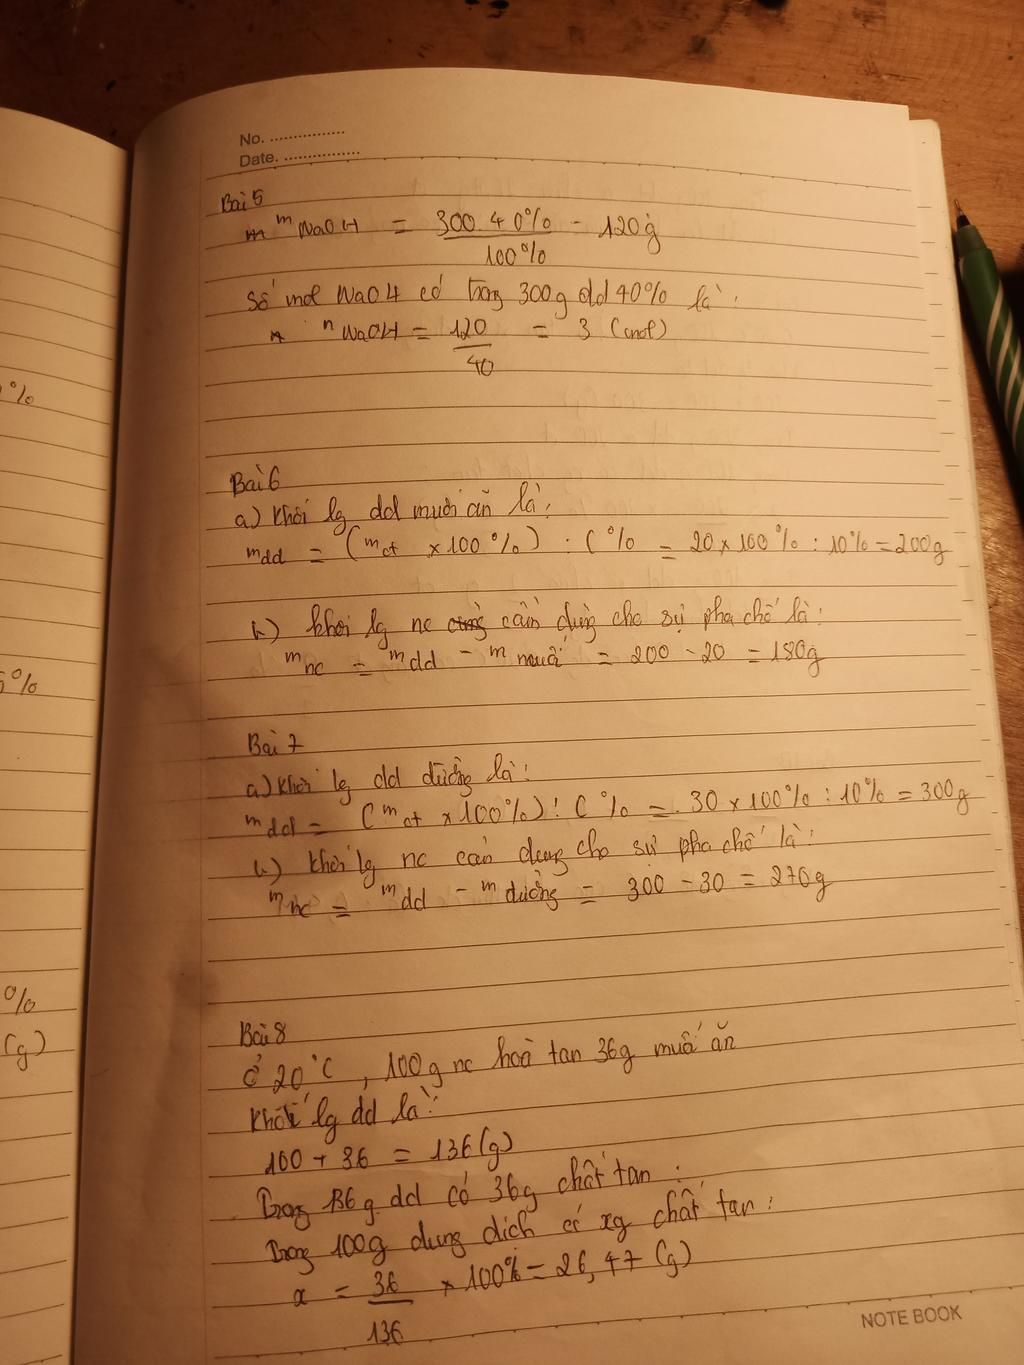 No. ..................
Date. ..................
%
5%
%
(g)
Bài 5
m NaOH = 300.40% / 100% = 120g
Số mol NaOH có trong 300g dd 40% là:
n NaOH = 120 / 40 = 3 (mol)
Bài 6
a) Khối lg dd muối ăn là:
mdd = (mct x 100%) : C% = 20 x 100% : 10% = 200g
b) Khối lg nc cần dùng cho sự pha chế là:
mnc = mdd - m muối = 200 - 20 = 180g
Bài 7
a) Khối lg dd đường là:
mdd = (mct x 100%) : C% = 30 x 100% : 10% = 300g
b) Khối lg nc cần dùng cho sự pha chế là:
mnc = mdd - m đường = 300 - 30 = 270g
Bài 8
Ở 20°C, 100g nc hoà tan 36g muối ăn
Khối lg dd là:
100 + 36 = 136 (g)
Trong 136g dd có 36g chất tan:
Trong 100g dung dịch có xg chất tan:
x = 36 / 136 x 100% = 26,47 (g)
NOTE BOOK